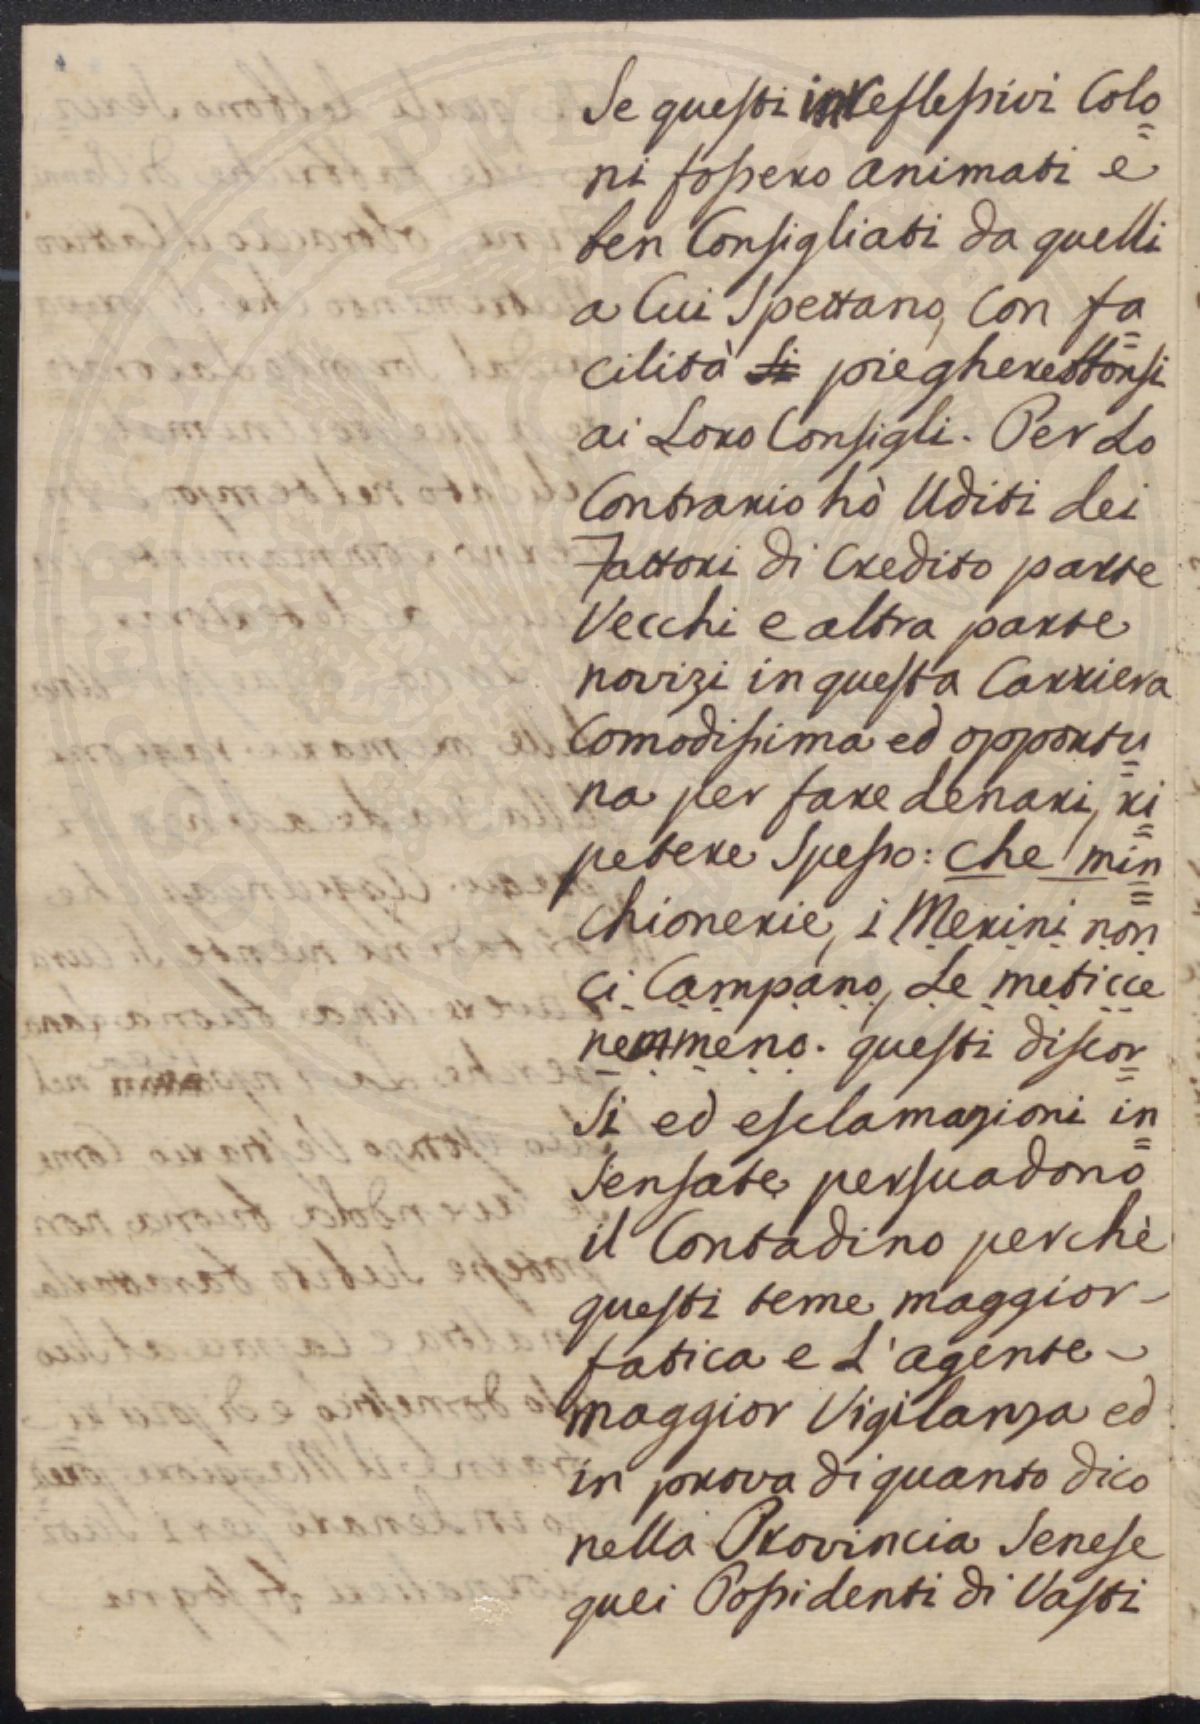 Se questi inreflessivi Colo
ni fossero animati e
ben Consigliati da quelli
a Cui Spettano, Con fa
cilità si piegherebbonsi
ai Loro Consigli. Per Lo
Contrario hò Uditi dei
Fattori di Credito parte
Vecchi e altra parte
novizi in questa Carriera
Comodissima ed opportu
na per fare denari, ri
petere Spesso: che min
chionerie, i Merini non
ci Campano, Le meticce
nemmeno. questi discor
si ed esclamazioni in
sensate persuadono
il Contadino perchè
questi teme maggior
fatica e L'agente
maggior Vigilanza ed
in prova di quanto dico
nella Provincia Senese
quei Possidenti di Vasti